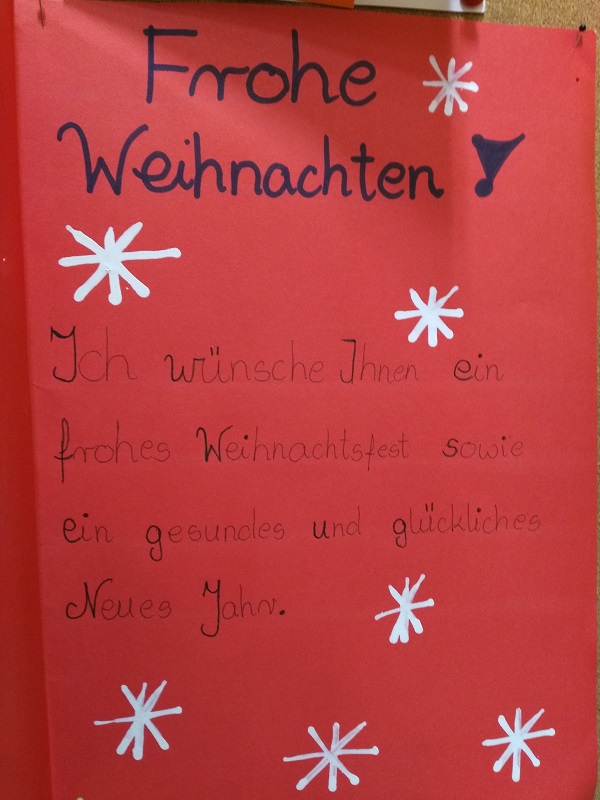 Frohe
Weihnachten!
Ich wünsche Ihnen ein
frohes Weihnachtsfest sowie
ein gesundes und glückliches
Neues Jahr.